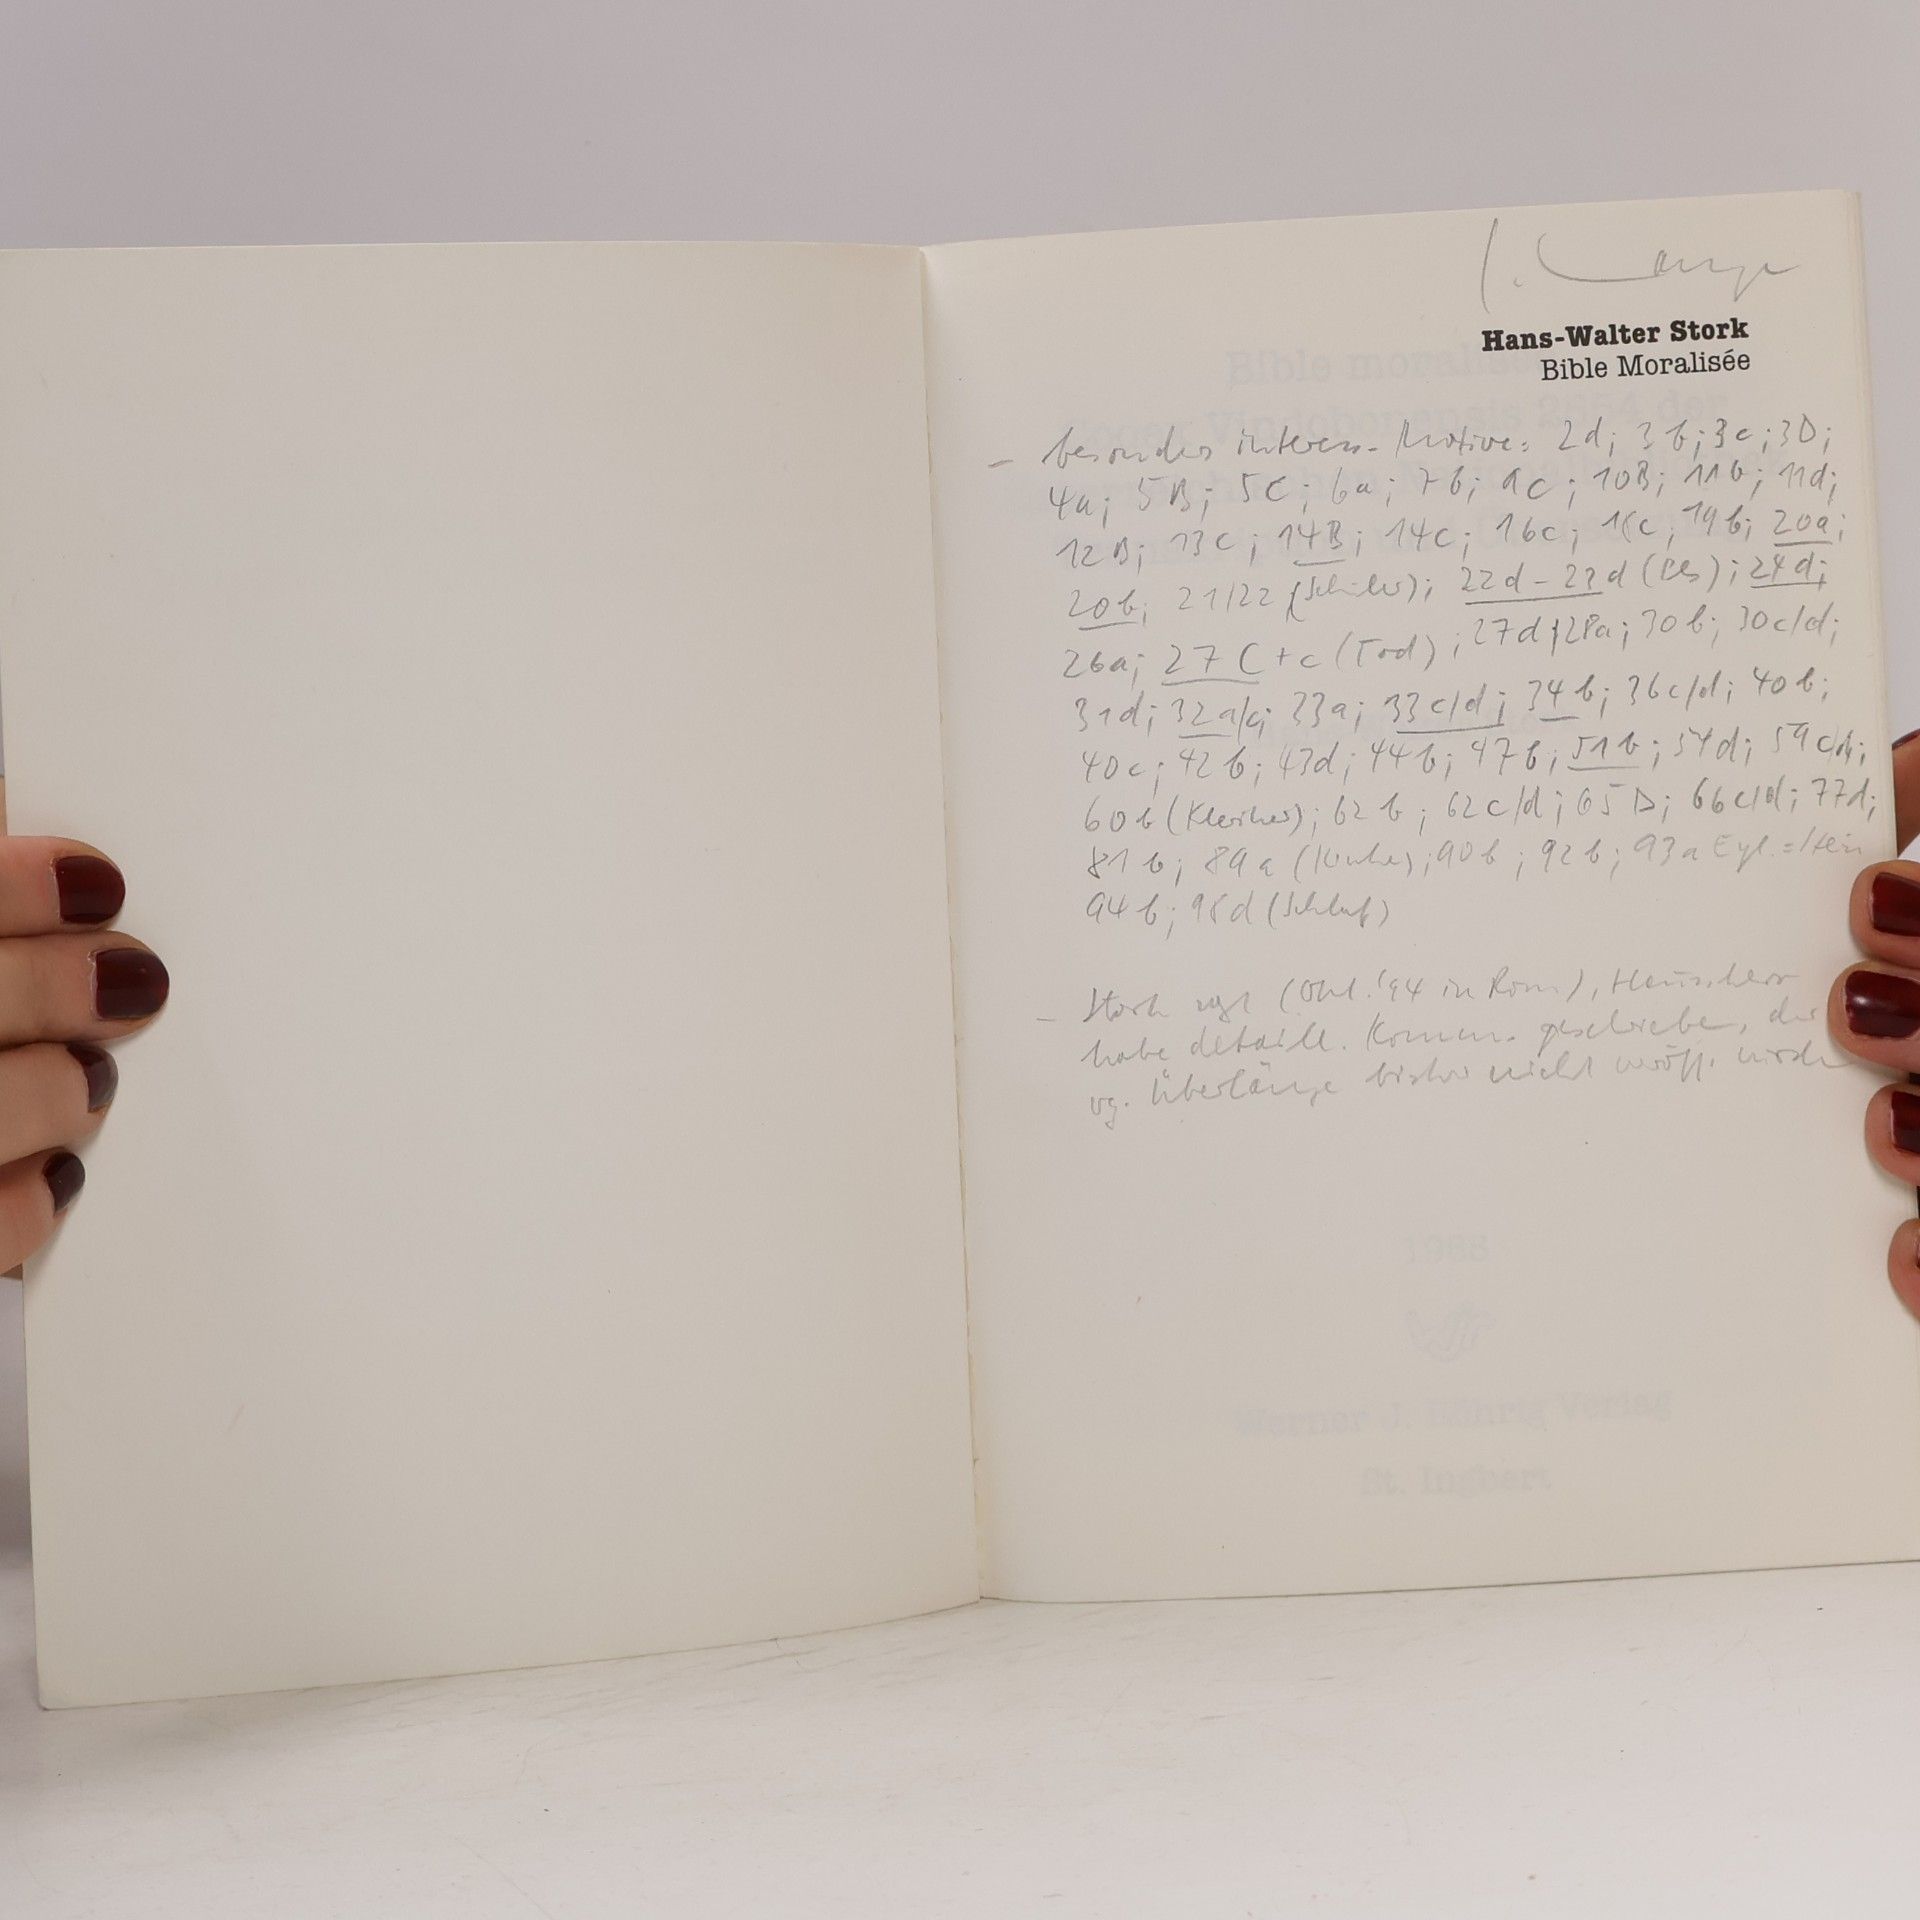 Hans-Walter Stork
Bible Moralisée
– besonders interess. Motive: 2d; 3b; 3c; 3D;
4a; 5B; 5C; 6a; 7b; 9c; 10B; 11b; 11d;
12B; 13c; 14B; 14c; 16c; 18c, 19b; 20a;
20b; 21/22 (Schiler); 22d – 23d; 24d;
26a; 27C + c (Tod); 27d/28a; 30b; 30c/d;
31d; 32a/c; 33a; 33c/d; 34b; 36c/d; 40b;
40c; 42b; 43d; 44b; 47b; 51b; 54d; 59c/d;
60b (Kleriker); 62b; 62c/d; 65D; 66c/d; 77d;
81b; 89a; 90b; 92b; 93a
94b; 98d (Schluß)
– Stork sagt (Okt. '94 in Rom), Haussherr
habe detaill. Komm. geschrieben, der
wg. Überlänge bisher nicht veröff. wurde
1988
Werner J. Röhrig Verlag
St. Ingbert